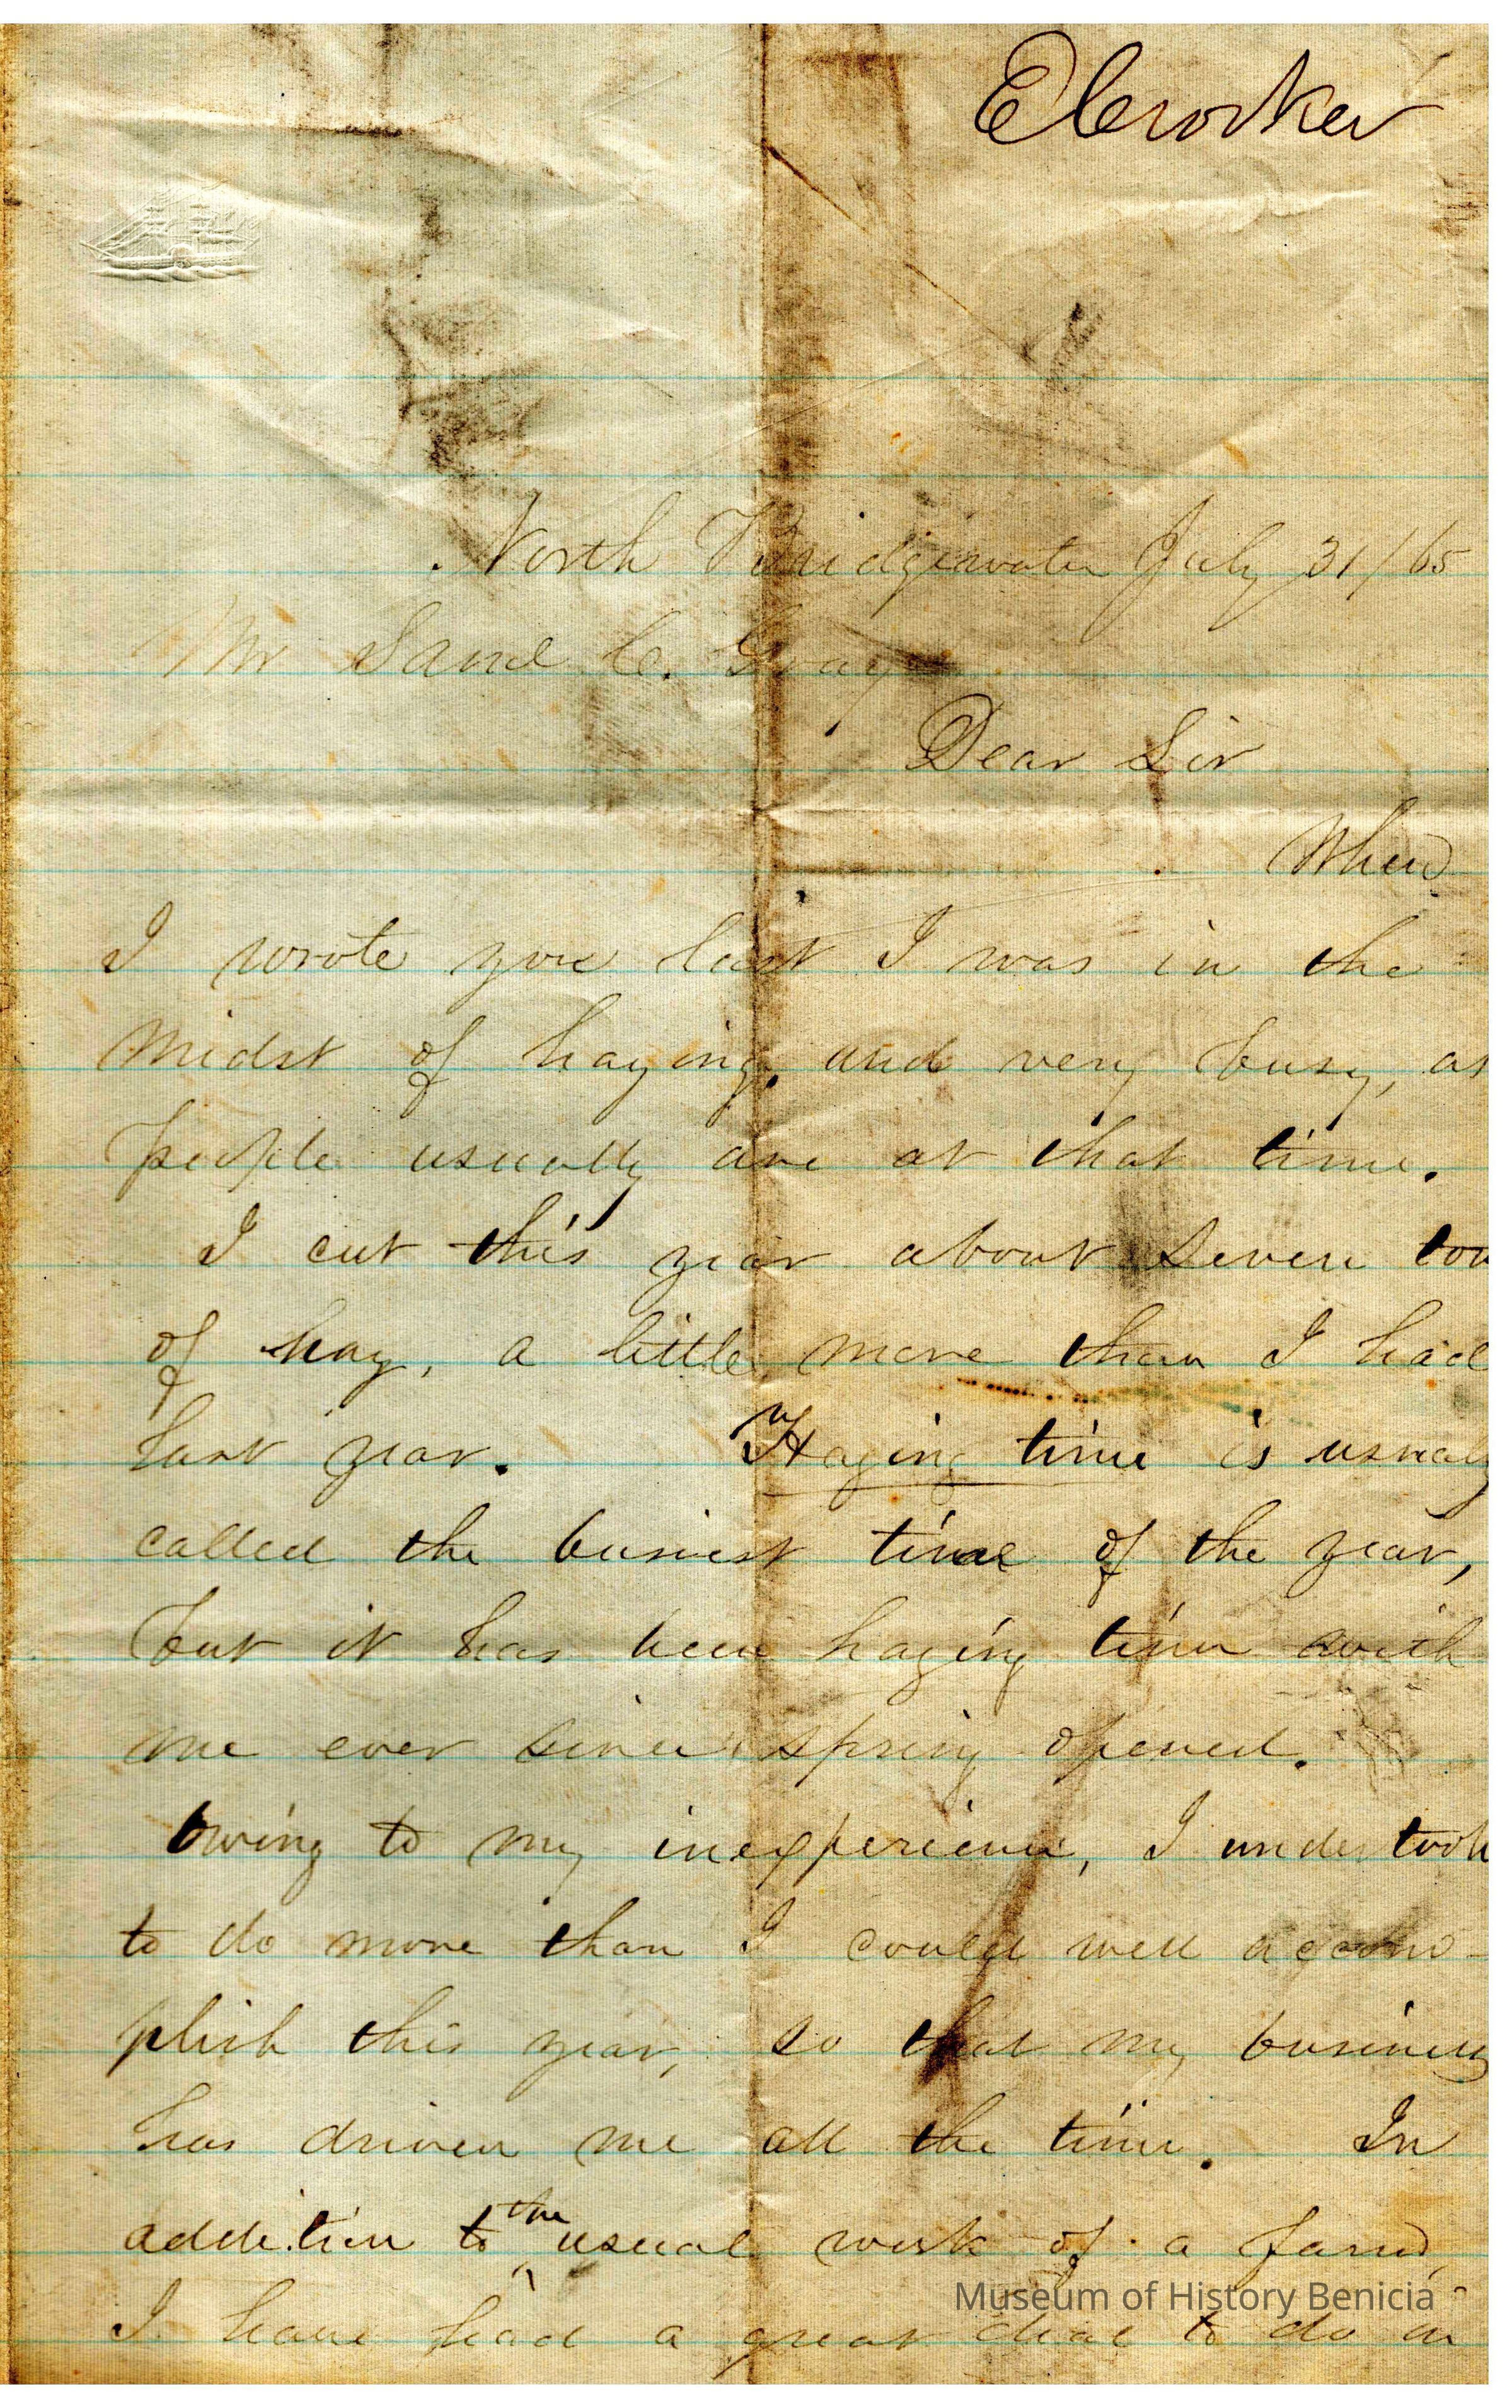 E Crocker
North Bridgewater July 31/65
Mr Saml C. Gray
Dear Sir
When
I wrote you last I was in the
midst of haying, and very busy, as
people usually are at that time.
I cut this year about seven ton
of hay, a little more than I had
last year. Haying time is usualy
called the busiest time of the year,
but it has been haying time with
me ever since spring opened.
Owing to my inexperience, I undertook
to do more than I could well accom-
plish this year, so that my business
has driven me all the time. In
addition to the usual work of a farm,
I have had a great deal to do in
Museum of History Benicia